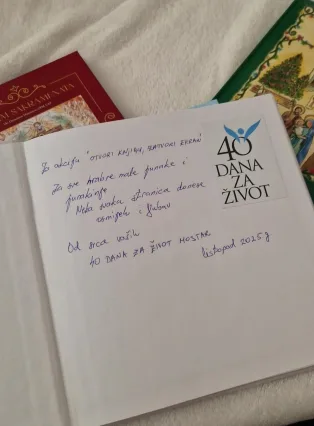 SAKRAMENATA
Za akciju "OTVORI KNJIGU, ZATVORI EKRAN"
Za sve hrabre male junake i
junakinje
Neka svaka stranica donese
osmijeh i ljubav
Od srca vaši
40 DANA ZA ŽIVOT MOSTAR
listopad 2025.g
40
DANA
ZA
ŽIVOT